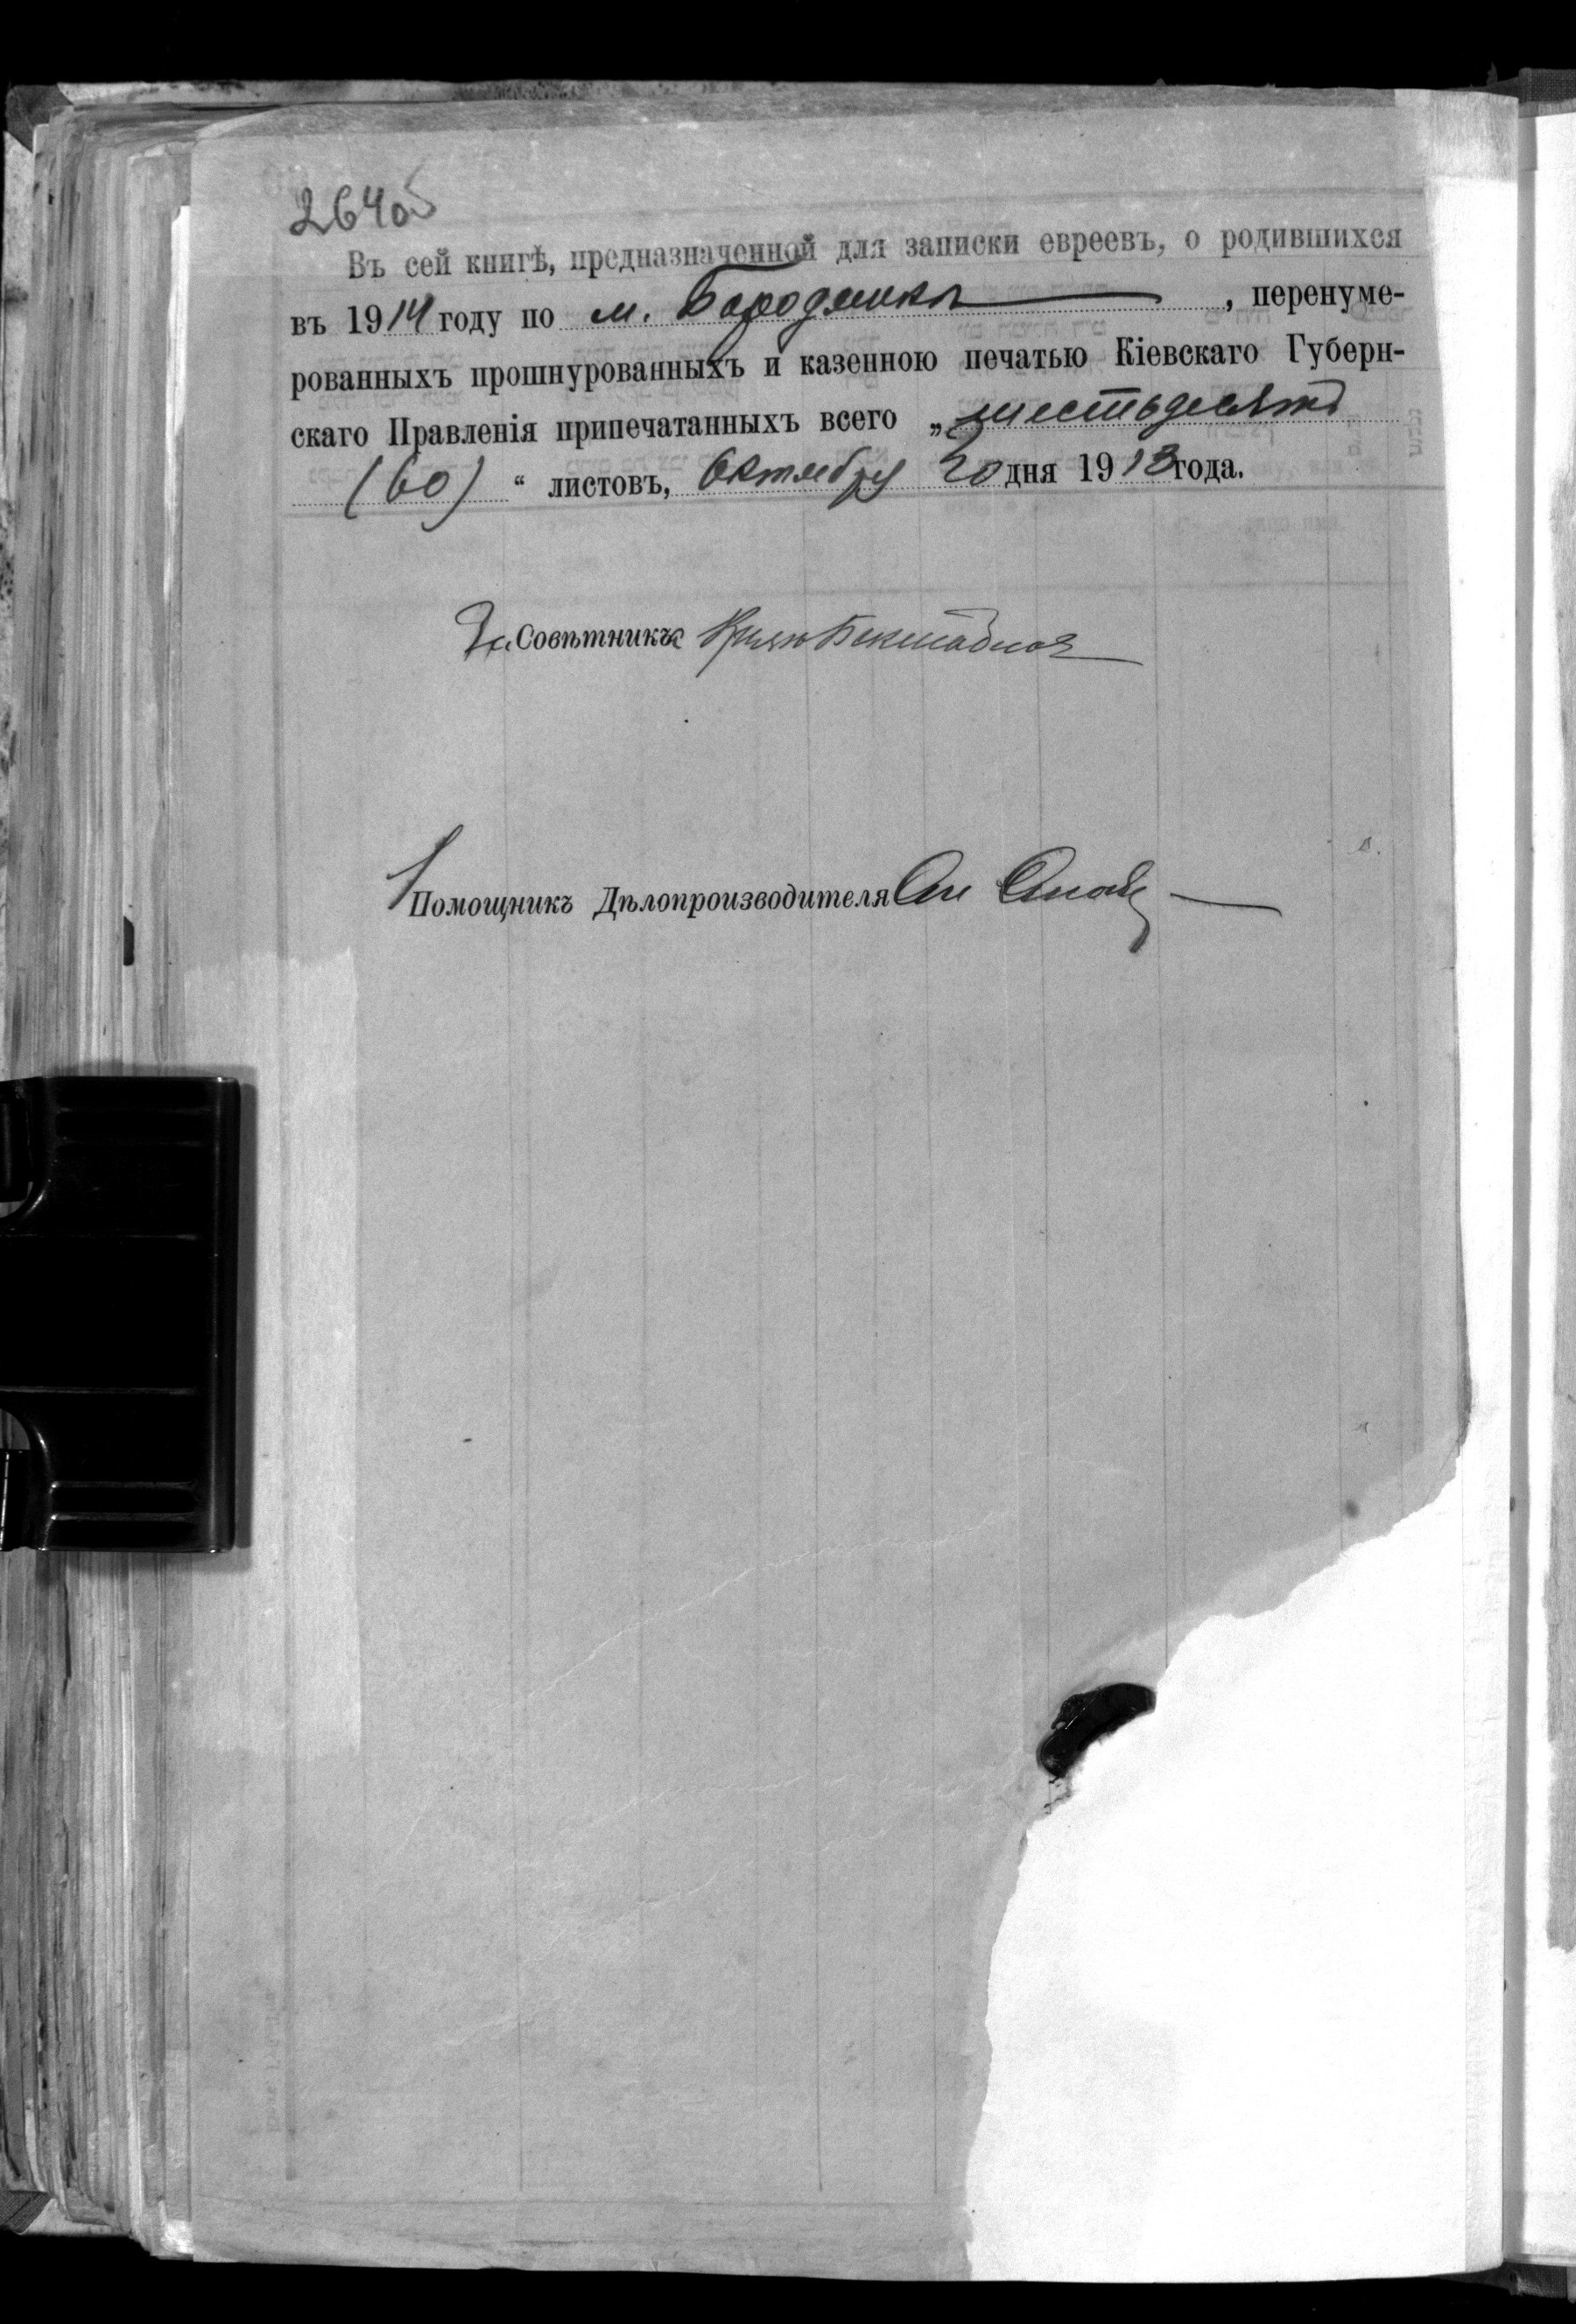 264об
Въ сей книгѣ, предназначенной для записки евреевъ, о родившихся
въ 1914 году по м. Бородянкѣ, перенуме-
рованныхъ прошнурованныхъ и казенною печатью Кіевскаго Губерн-
скаго Правленія припечатанныхъ всего „шестьдесятъ
(60)“ листовъ, Октября 20 дня 1913 года.
За Совѣтника
Помощникъ Дѣлопроизводителя